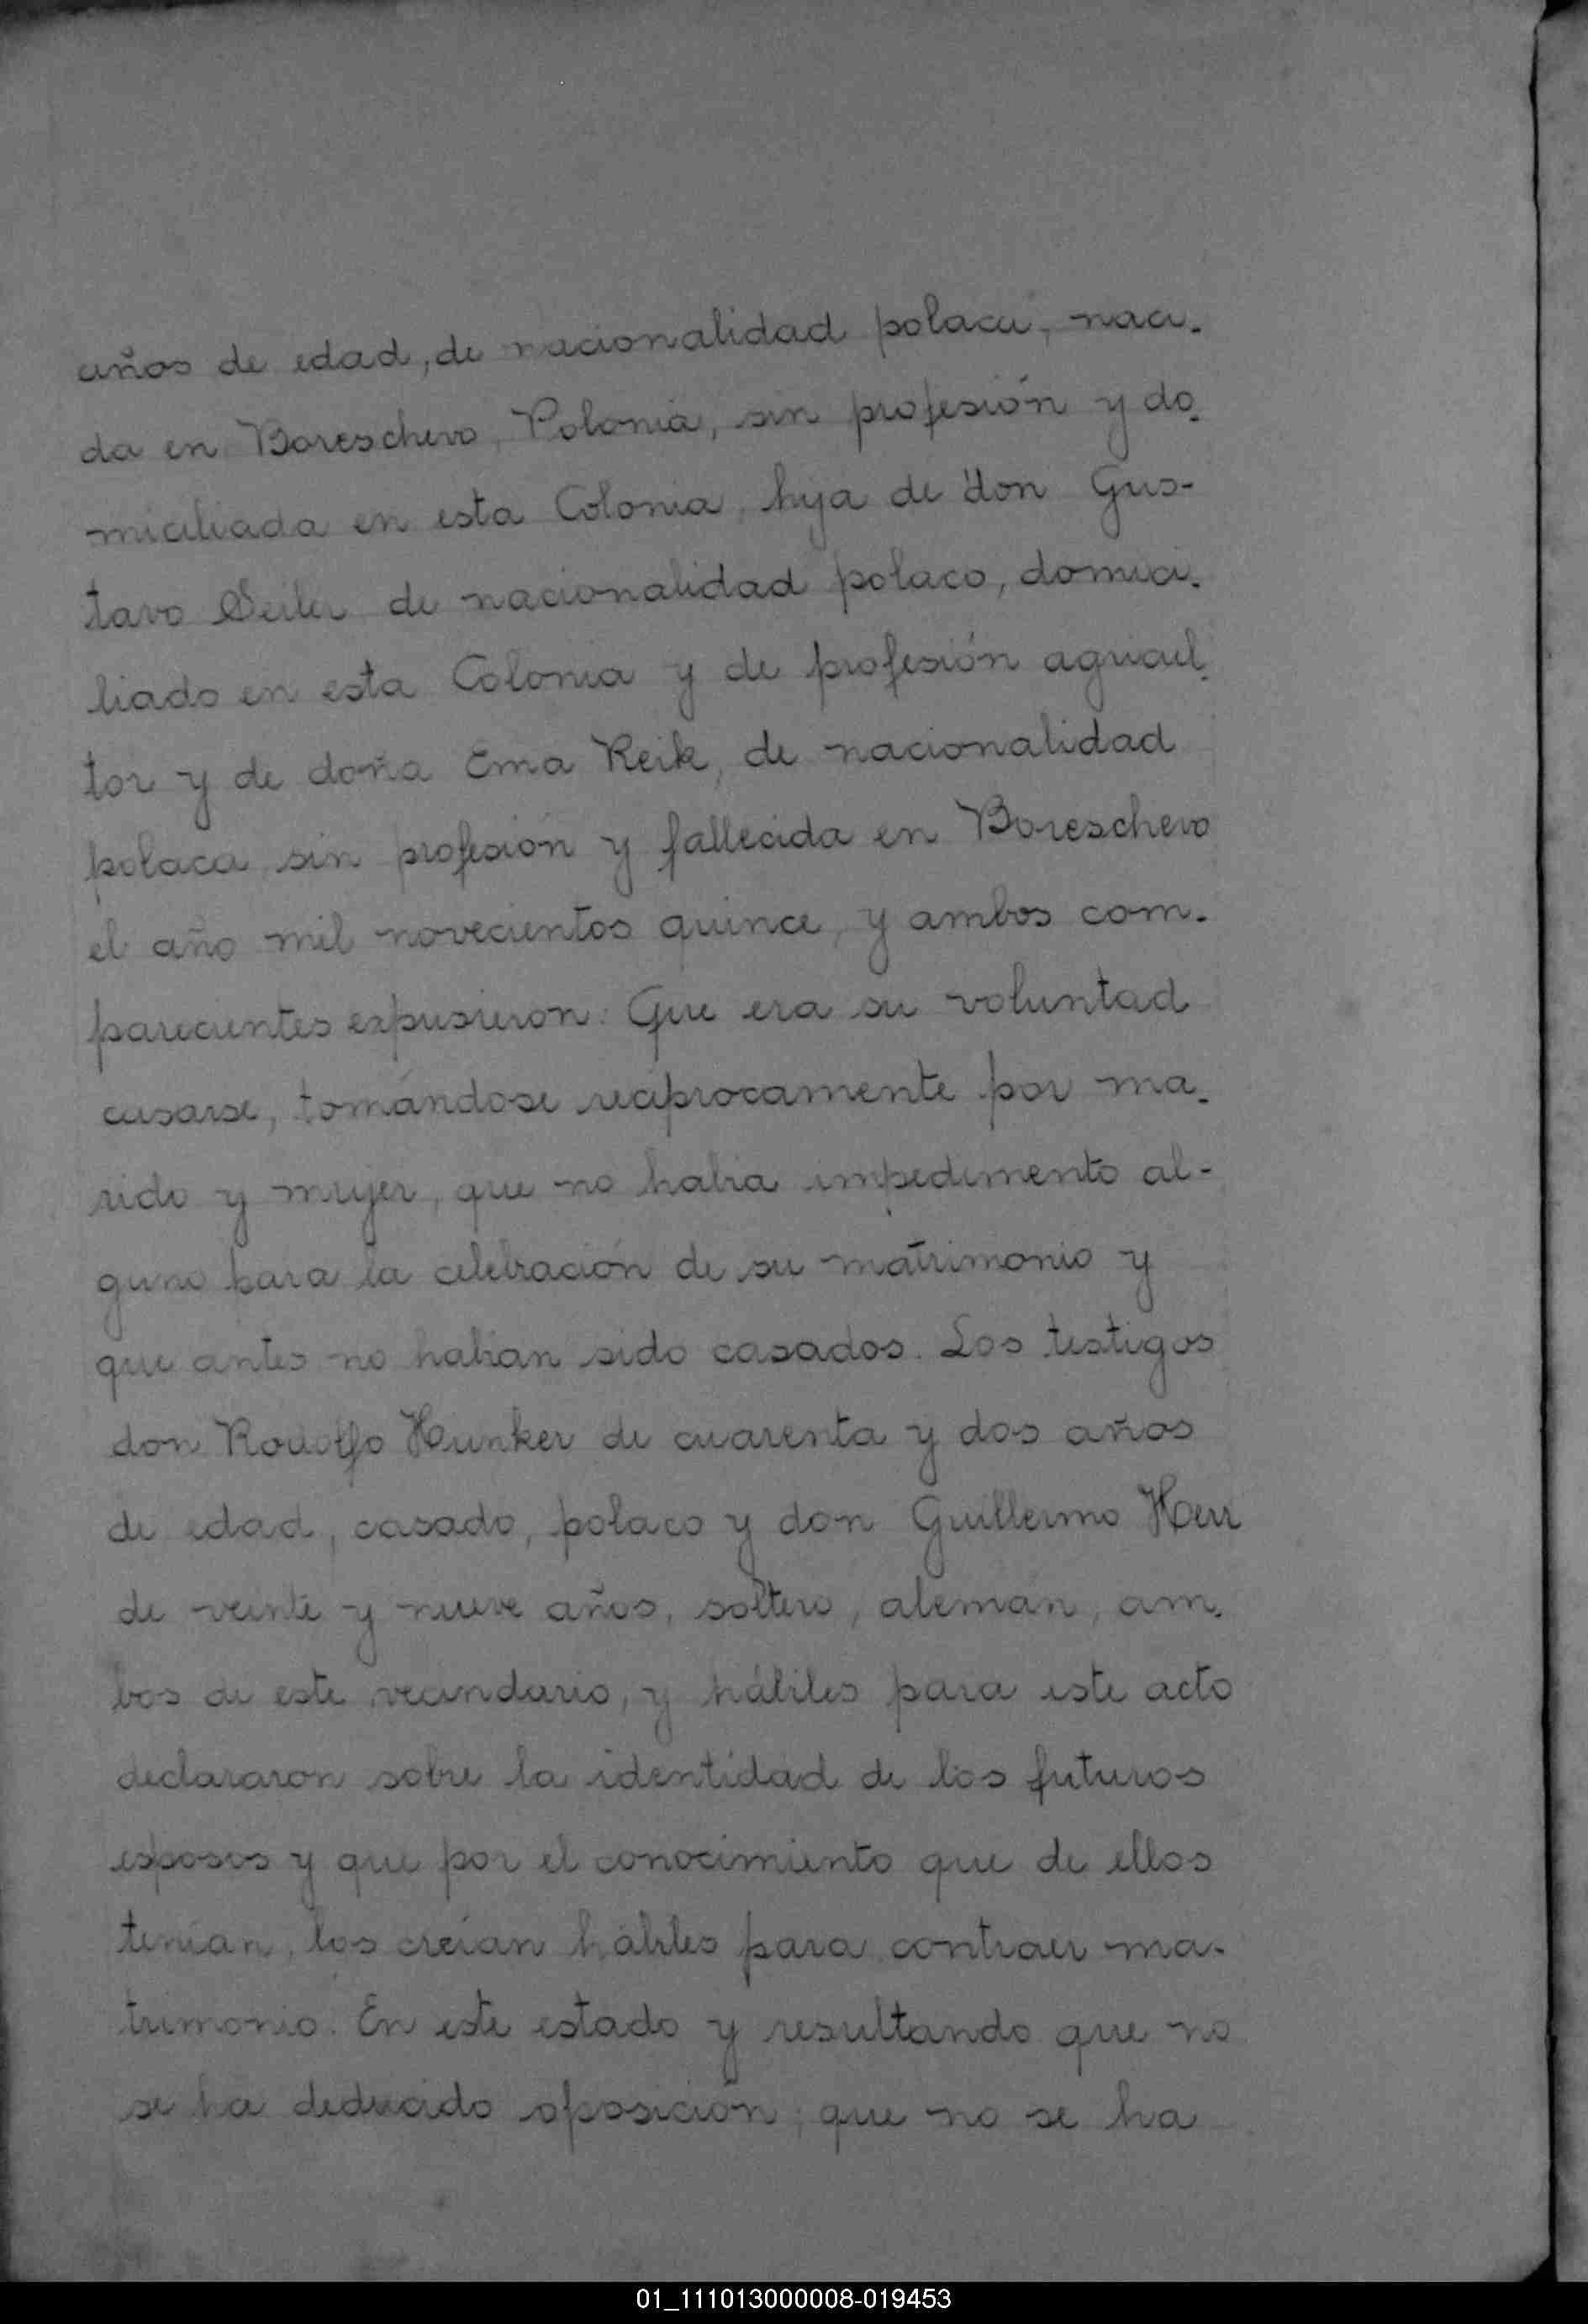 años de edad, de nacionalidad polaca, naci-
da en Boreschevo, Polonia, sin profesión y do-
miciliada en esta Colonia, hija de don Gus-
tavo Seiler de nacionalidad polaco, domici-
liado en esta Colonia y de profesión agricul-
tor y de doña Ema Reik, de nacionalidad
polaca, sin profesión y fallecida en Boreschevo
el año mil novecientos quince, y ambos com-
parecientes expusieron: Que era su voluntad
casarse, tomándose reciprocamente por ma-
rido y mujer, que no habia impedimento al-
guno para la celebración de su matrimonio y
que antes no habian sido casados. Los testigos
don Rodolfo Hunker de cuarenta y dos años
de edad, casado, polaco y don Guillermo Herr
de veinte y nueve años, soltero, alemán, am-
bos de este vecindario, y hábiles para este acto
declararon sobre la identidad de los futuros
esposos y que por el conocimiento que de ellos
tenían, los creían hábiles para contraer ma-
trimonio. En este estado y resultando que no
se ha deducido oposición; que no se ha
01_111013000008-019453